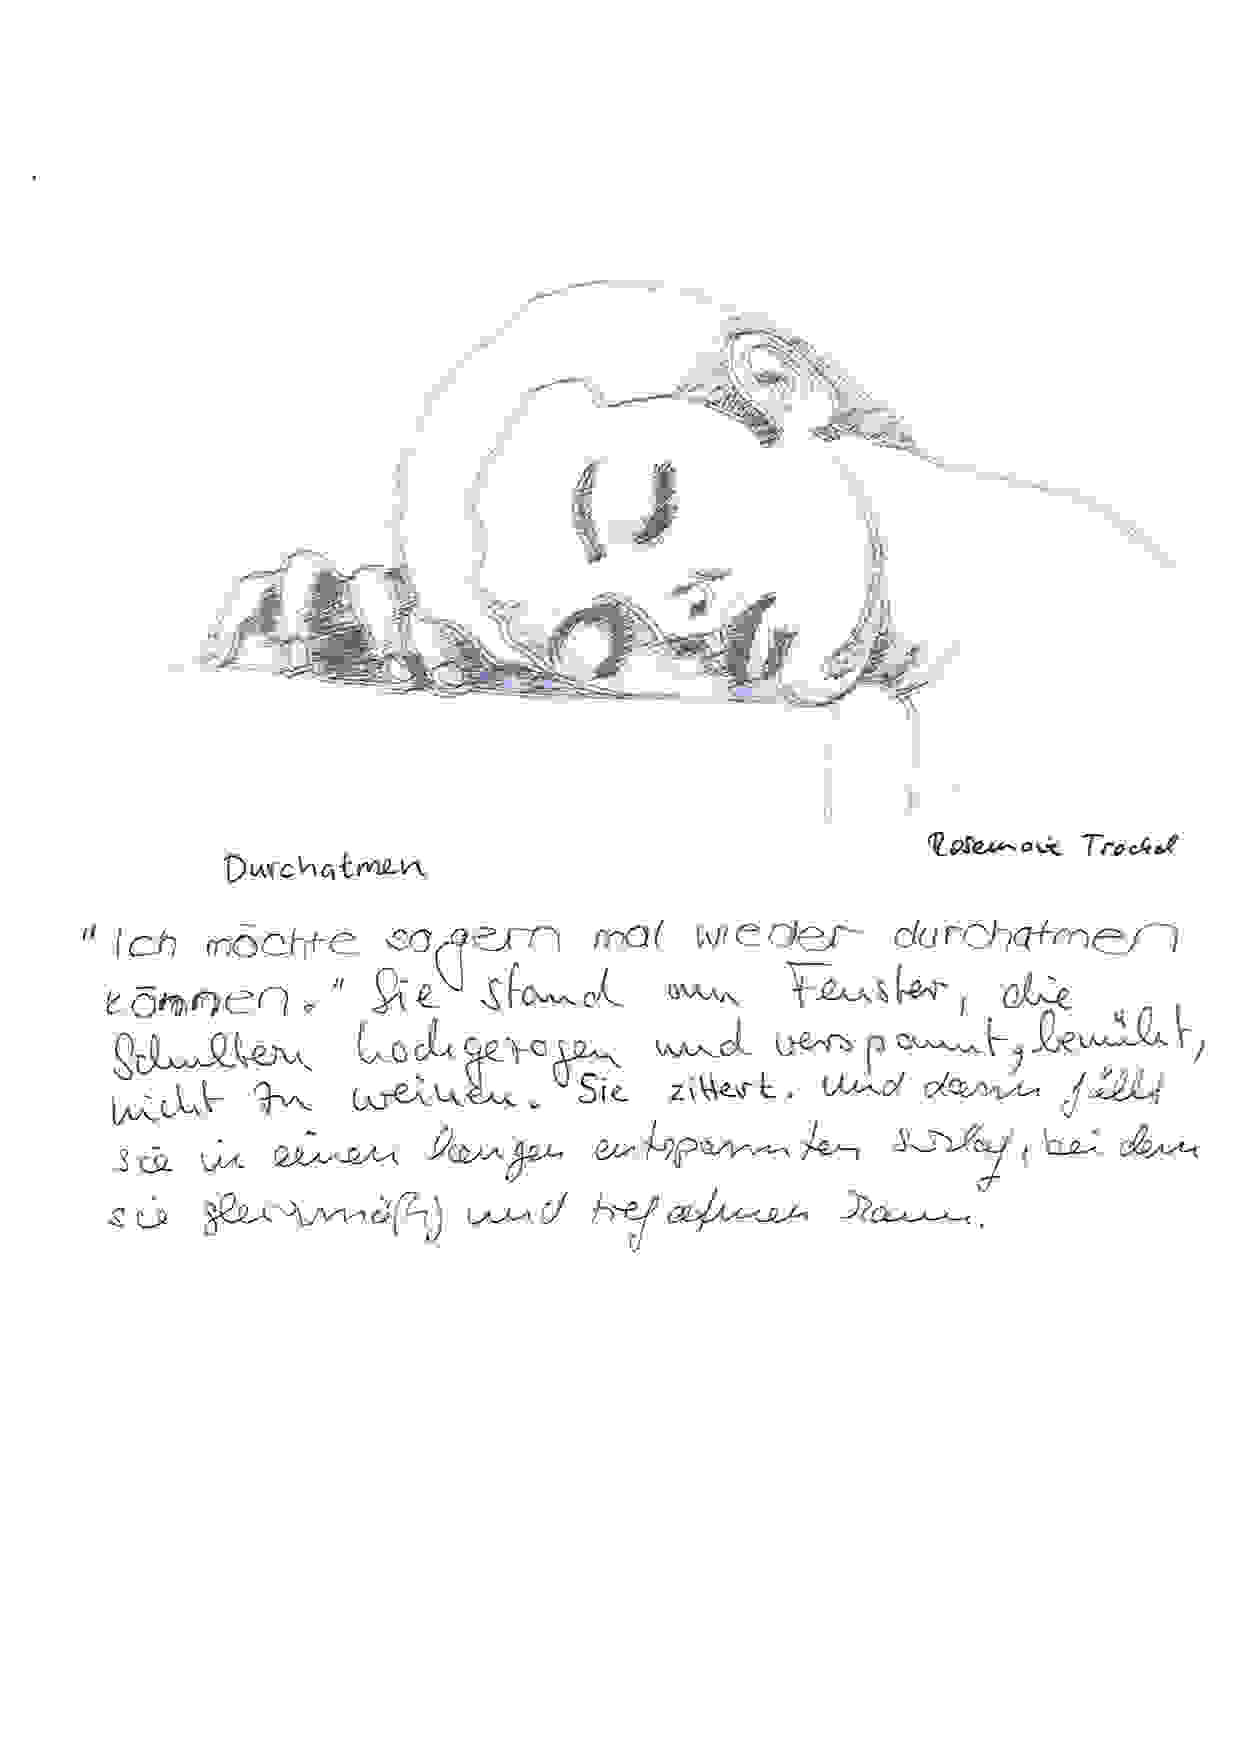 Rosemarie Trockel
Durchatmen
"Ich möchte so gern mal wieder durchatmen
können." Sie stand am Fenster, die
Schultern hochgezogen und verspannt, bemüht,
nicht zu weinen. Sie zittert. Und dann fällt
sie in einen langen entspannten Schlaf, bei dem
sie gleichmäßig und tief atmen kann.